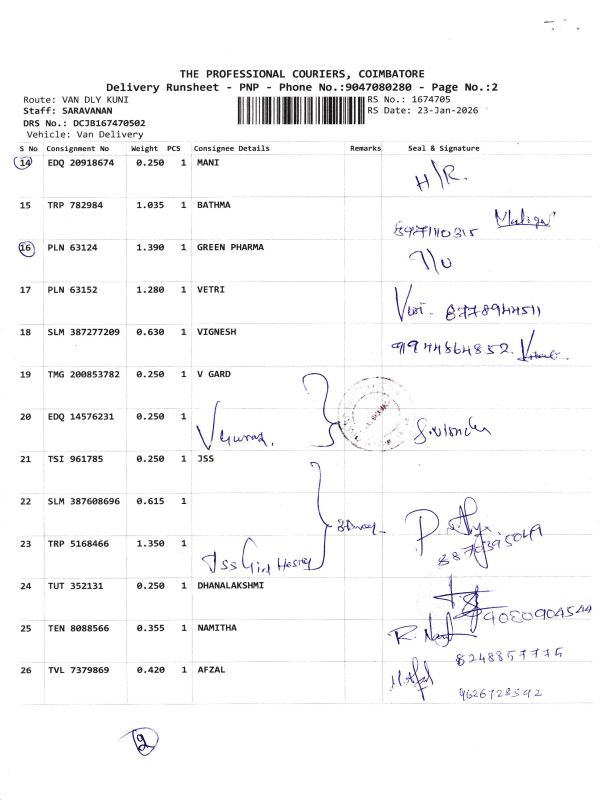 THE PROFESSIONAL COURIERS, COIMBATORE
Delivery Runsheet - PNP - Phone No.:9047080280 - Page No.:2
Route: VAN DLY KUNI RS No.: 1674705
Staff: SARAVANAN RS Date: 23-Jan-2026
DRS No.: DCJB167470502
Vehicle: Van Delivery
S No Consignment No Weight PCS Consignee Details Remarks Seal & Signature
14 EDQ 20918674 0.250 1 MANI H/R.
15 TRP 782984 1.035 1 BATHMA
16 PLN 63124 1.390 1 GREEN PHARMA
17 PLN 63152 1.280 1 VETRI 8778944511
18 SLM 387277209 0.630 1 VIGNESH 9944864852.
19 TMG 200853782 0.250 1 V GARD
20 EDQ 14576231 0.250 1 V Guard
21 TSI 961785 0.250 1 JSS
22 SLM 387608696 0.615 1
23 TRP 5168466 1.350 1 Jss Girl Hostel 8870395049
24 TUT 352131 0.250 1 DHANALAKSHMI
25 TEN 8088566 0.355 1 NAMITHA 8248857775
26 TVL 7379869 0.420 1 AFZAL 9626728592
2